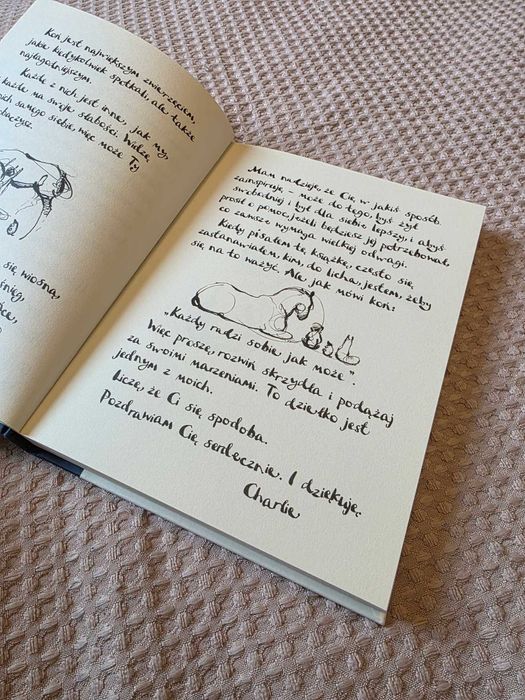 Koń jest największym zwierzęciem,
jakie kiedykolwiek spotkali, ale także
najłagodniejszym.
Każde z nich jest inne, jak my,
każde ma swoje słabości. Widzę
samego siebie, więc może Ty
się wiosną,
Mam nadzieję, że Cię w jakiś sposób
zainspiruje – może do tego, byś żył
swobodniej i był dla siebie lepszy, i abyś
prosił o pomoc, jeżeli będziesz jej potrzebował,
co zawsze wymaga wielkiej odwagi.
Kiedy pisałem tę książkę, często się
zastanawiałem, kim, do licha, jestem, żeby
się na to ważyć. Ale, jak mówi koń:
„Każdy radzi sobie jak może”.
Więc proszę, rozwiń skrzydła i podążaj
za swoimi marzeniami. To dziełko jest
jednym z moich.
Liczę, że Ci się spodoba.
Pozdrawiam Cię serdecznie. I dziękuję.
Charlie